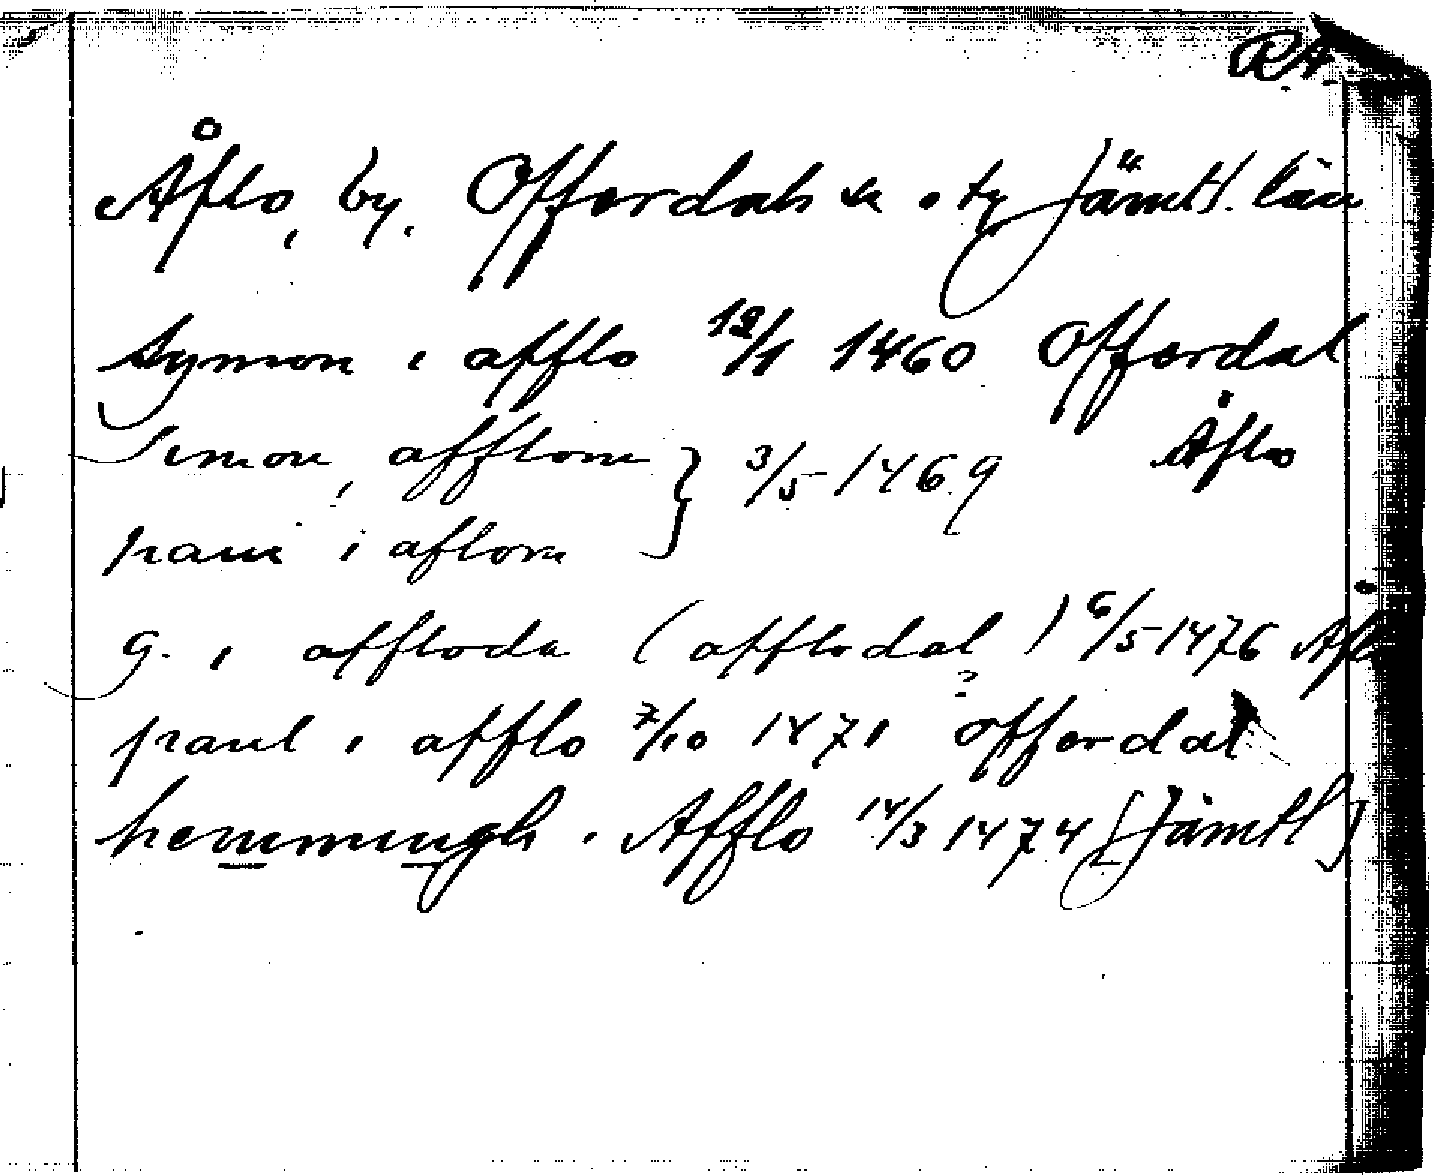 RA
Åflo, by. Offerdals sn o tg Jämtl. län
Symon i afflo 12/1 1460 Offerdal
Simon, afflom } 3/5 1469 Åflo
paui i aflom
g. i affloda (afflodal ?) 6/5 1476 Åflo
paul i afflo 7/10 1471 offerdal
hemmingh i Afflo 14/3 1474 [Jämtl]